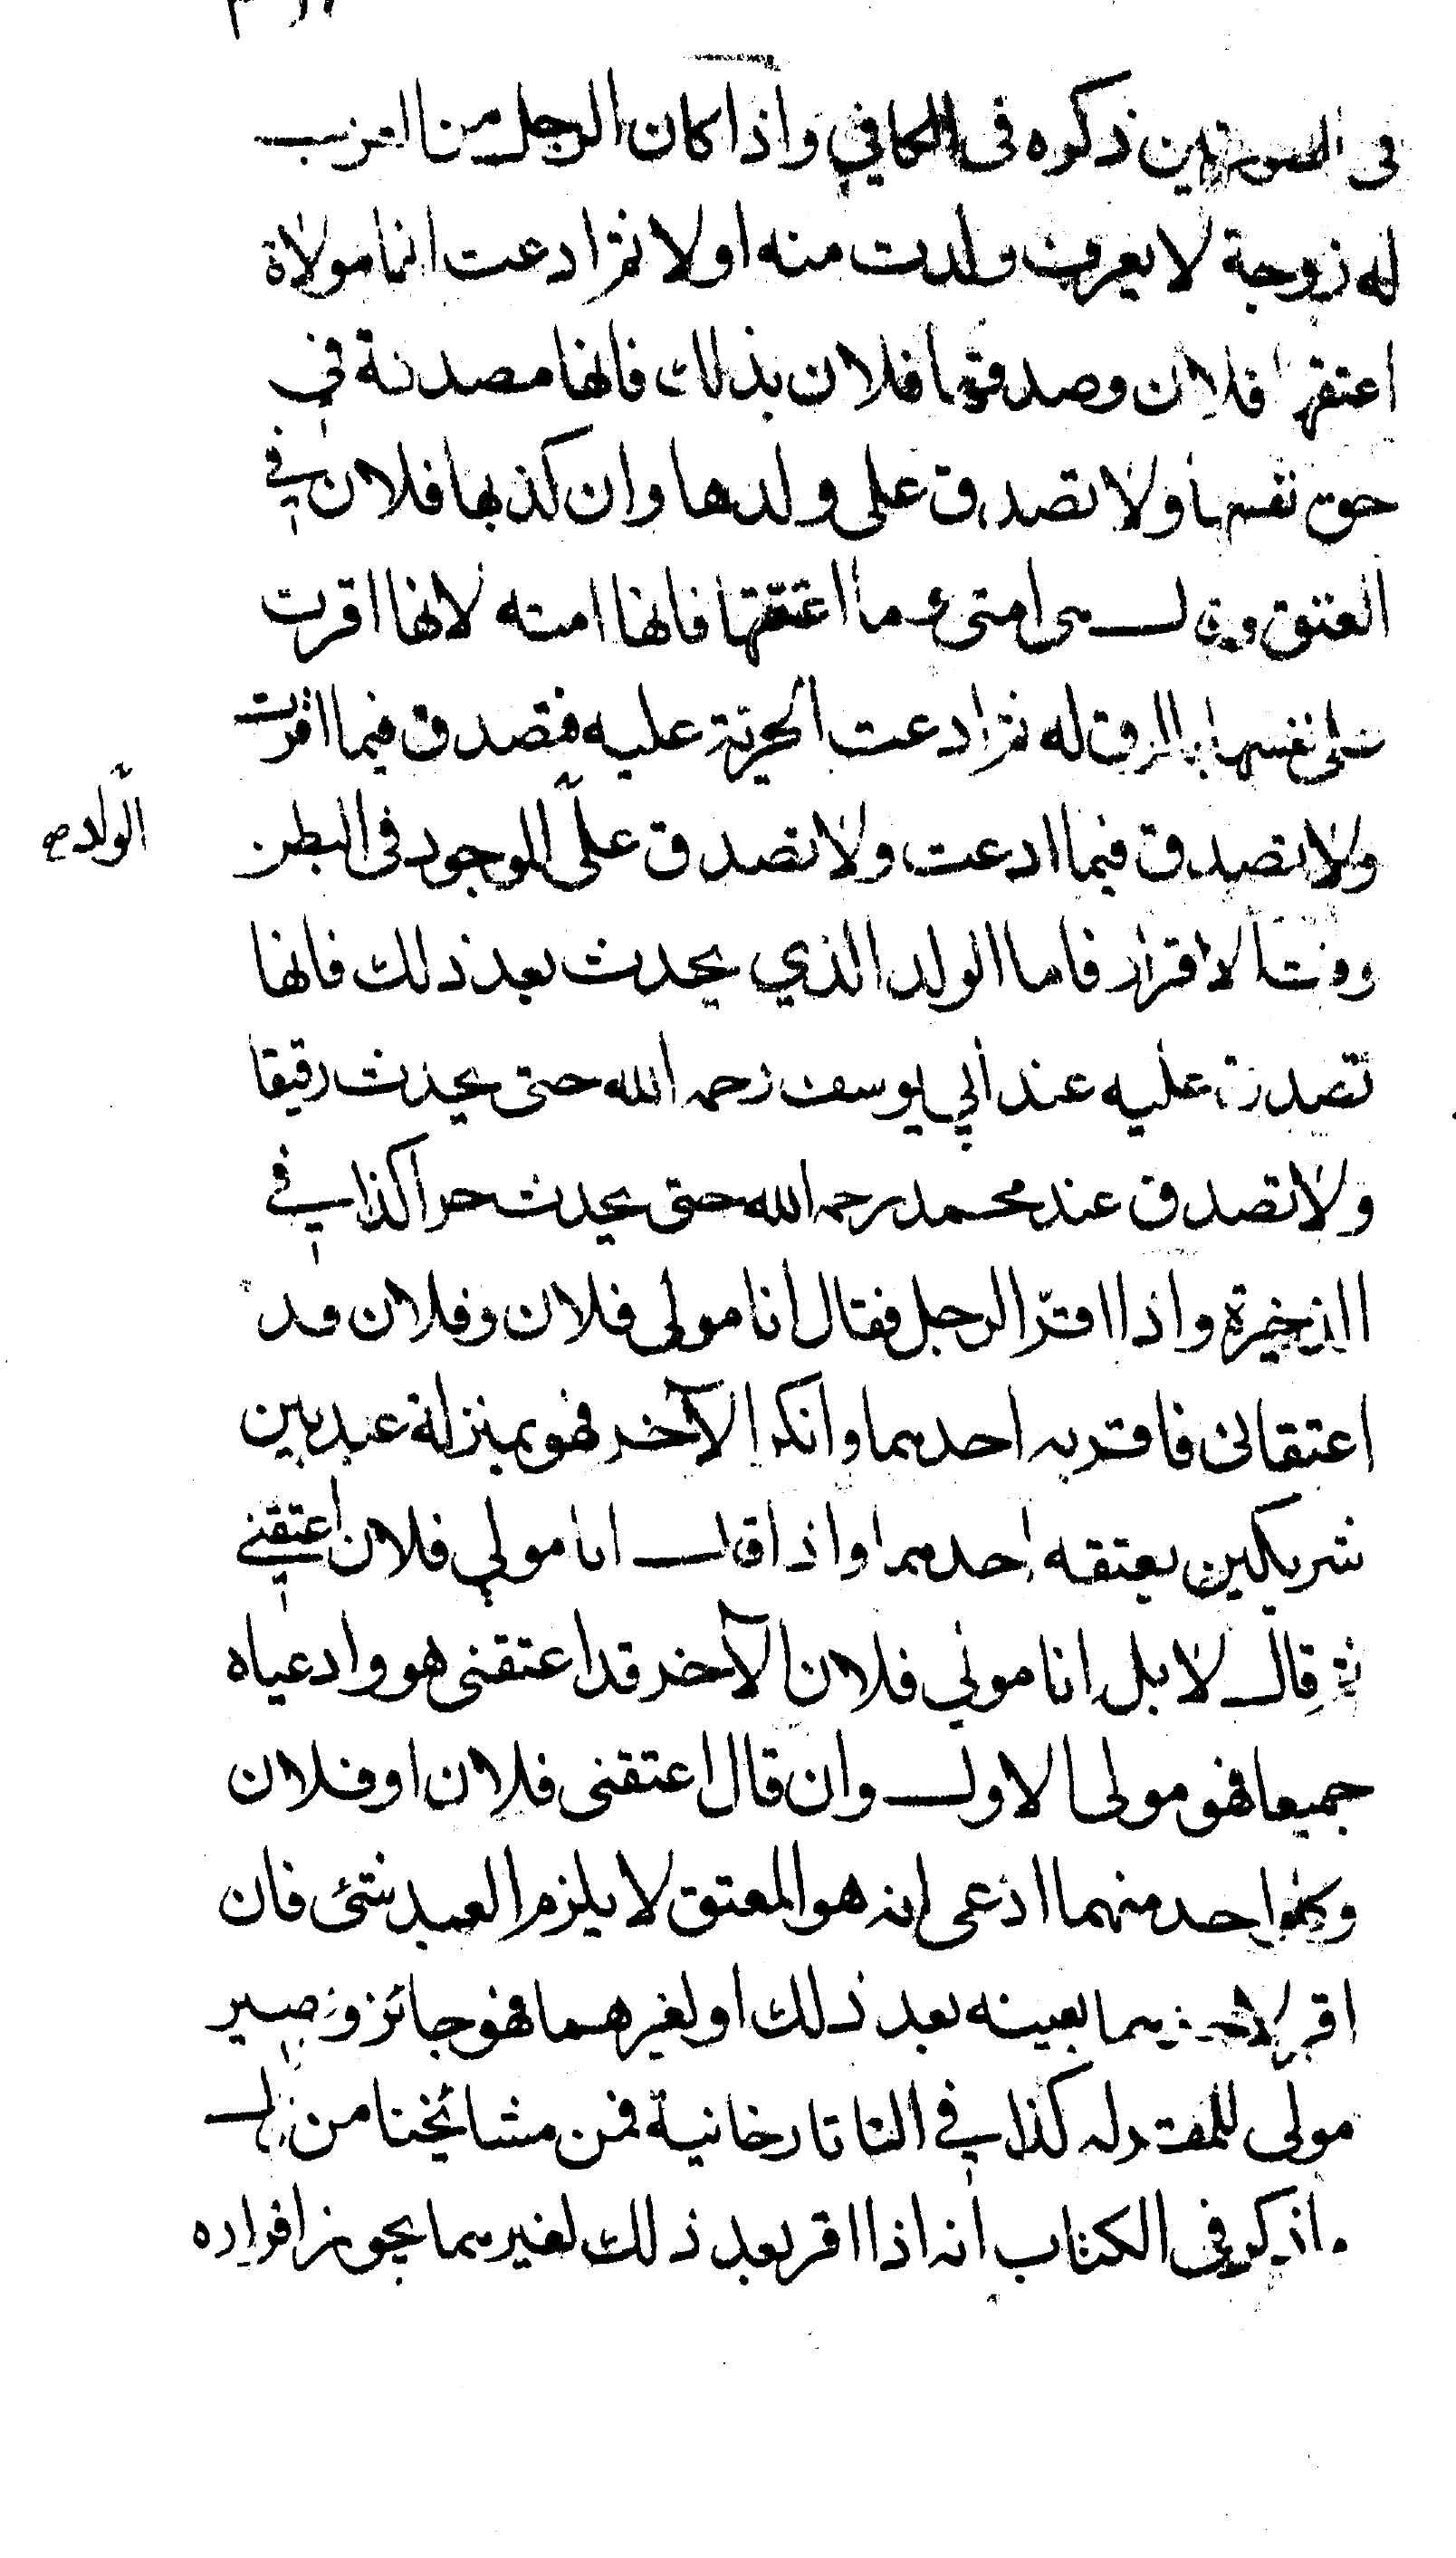 في الصورتين ذكره في الكافي واذا كان الرجل من العرب
له زوجة لا يعرف ولدت منه اولا ثم ادعت انها مولاة
اعتقها فلان وصدقها فلان بذلك فانها مصدقة في
حق نفسها ولا تصدق على ولدها وان كذبها فلان في
العتق وقال هى امتى وما اعتقتها فانها امته لانها اقرت
على نفسها بالرق له ثم ادعت الحرية عليه فتصدق فيما اقرت
ولا تصدق فيما ادعت ولا تصدق على الموجود في البطن
الولد صح
وقت الاقرار فاما الولد الذي يحدث بعد ذلك فانها
تصدق عليه عند أبي يوسف رحمه الله حتى يحدث رقيقا
ولا تصدق عند محمد رحمه الله حتى يحدث حرا كذا في
الذخيرة واذا اقرّ الرجل فقال انا مولى فلان وفلان قد
اعتقانى فاقر به احدهما وانكر الآخر فهو بمنزلة عبد بين
شريكين يعتقه احدهما واذا قال انا مولي فلان اعتقني
ثم قال لا بل انا مولي فلان الآخر قد اعتقنى هو وادعياه
جميعا فهو مولى الاول وان قال اعتقنى فلان او فلان
وكل واحد منهما ادعى انه هو المعتق لا يلزم العبد شئ فان
اقر لاحدهما بعينه بعد ذلك او لغيرهما فهو جائز ويصير
مولى للمقر له كذا في التاتارخانية فمن مشائخنا من قال
ما ذكر في الكتاب انه اذا اقر بعد ذلك لغيرهما يجوز اقراره